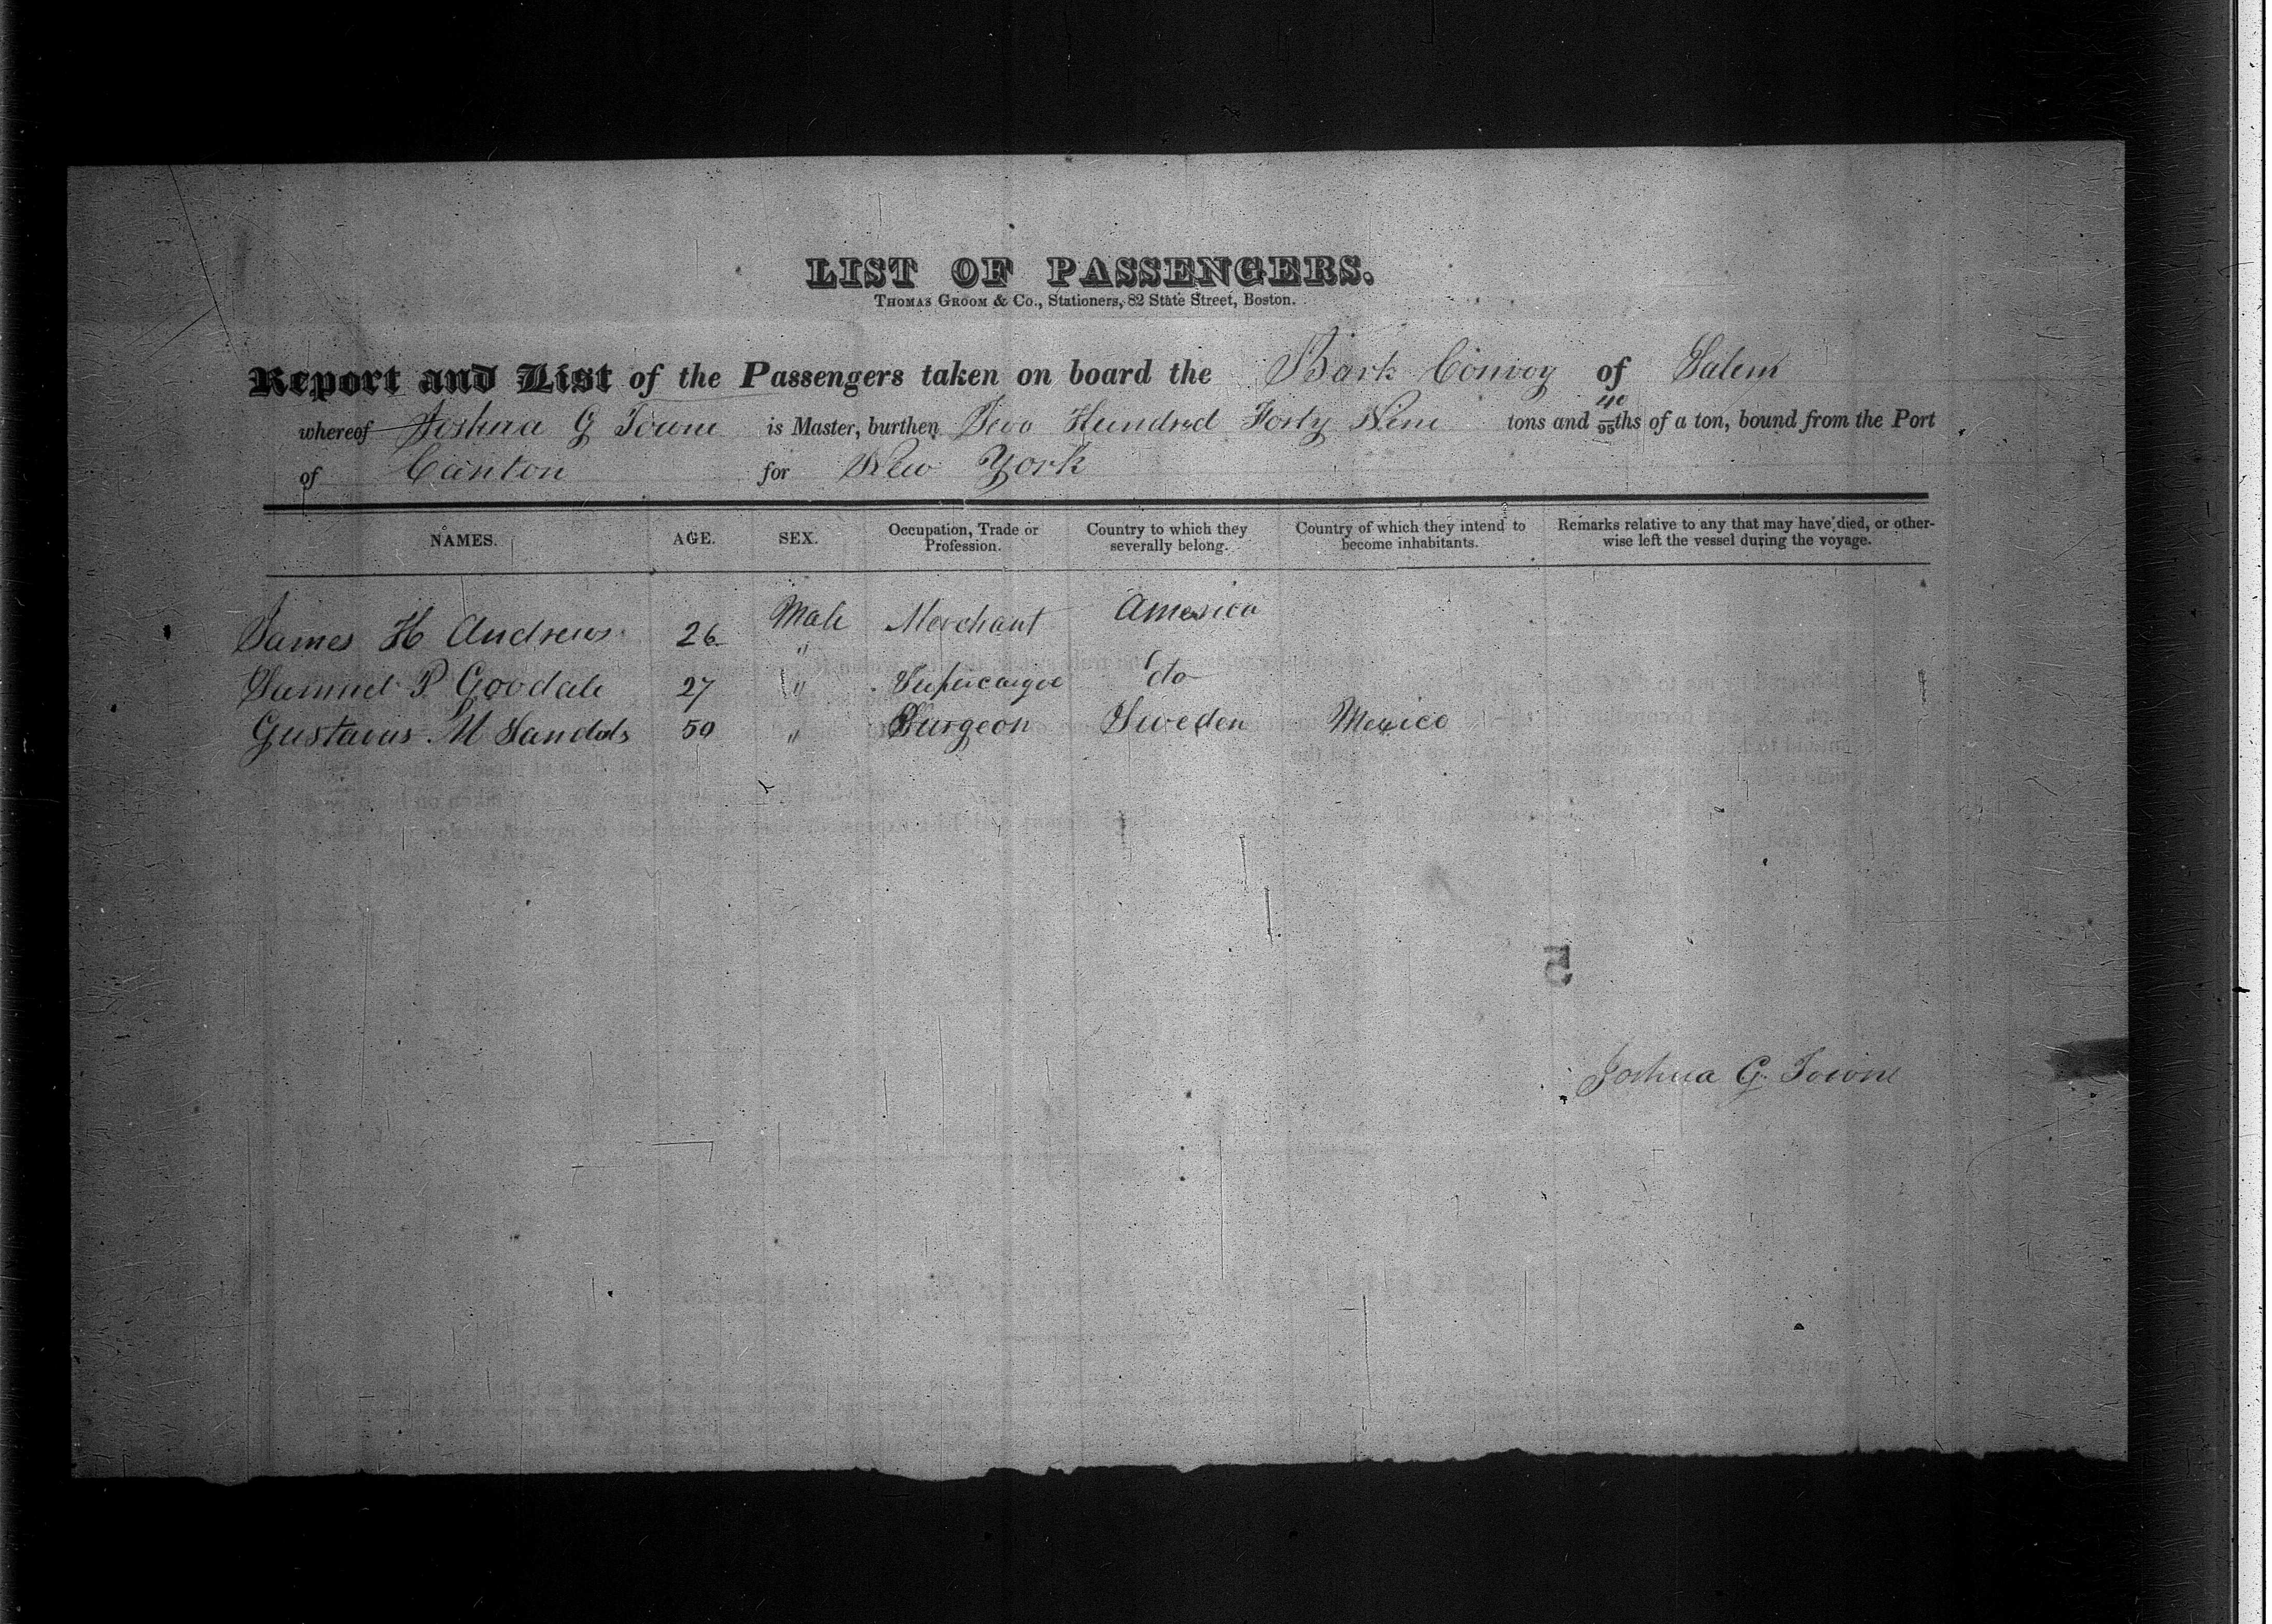 LIST OF PASSENGERS.
THOMAS GROOM & Co., Stationers, 82 State Street, Boston.
Report and List of the Passengers taken on board the Bark Convoy of Salem
whereof Joshua G Towne is Master, burthen Two Hundred Forty Nine tons and 40/95ths of a ton, bound from the Port
of Canton for New York
NAMES. AGE. SEX. Occupation, Trade or Profession. Country to which they severally belong. Country of which they intend to become inhabitants. Remarks relative to any that may have died, or otherwise left the vessel during the voyage.
James H Andrews 26 Male Merchant America
Samuel P Goodale 27 " Supercargoe do
Gustavus M Sandds 50 " Surgeon Sweden Mexico
5
Joshua G Towne